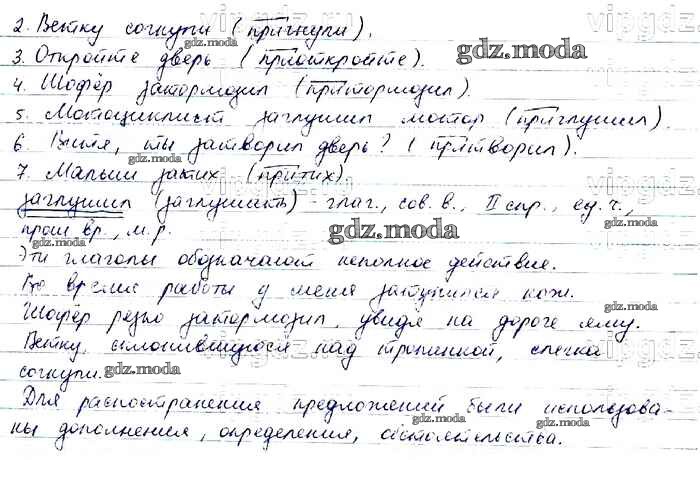 2. Ветку согнули (пригнули).
3. Откройте дверь (приоткройте).
gdz.moda
4. Шофёр затормозил (притормозил).
5. Мотоциклист заглушил мотор (приглушил).
6. Витя, ты затворил дверь? (притворил).
7. Малыш затих (притих).
заглушил (заглушить) - глаг., сов. в., II спр., ед. ч.,
прош. вр., м. р.
gdz.moda
gdz.moda
gdz.moda
Эти глаголы обозначают неполное действие.
Во время работы у меня затупился нож.
gdz.moda
Шофёр резко затормозил, увидя на дороге яму.
Ветку, склонившуюся над тропинкой, слегка
согнули.
gdz.moda
Для распостранения предложений были использова-
gdz.moda
gdz.moda
ны дополнения, определения, обстоятельства.
vipgdz.ru